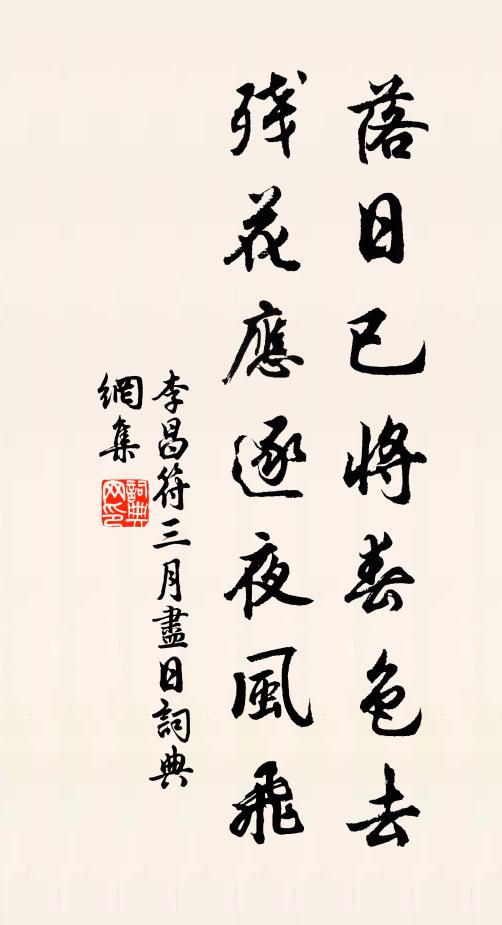 落日已將春色去
殘花應逐夜風飛
李昌符三月盡日詞典
網集
詞典網印